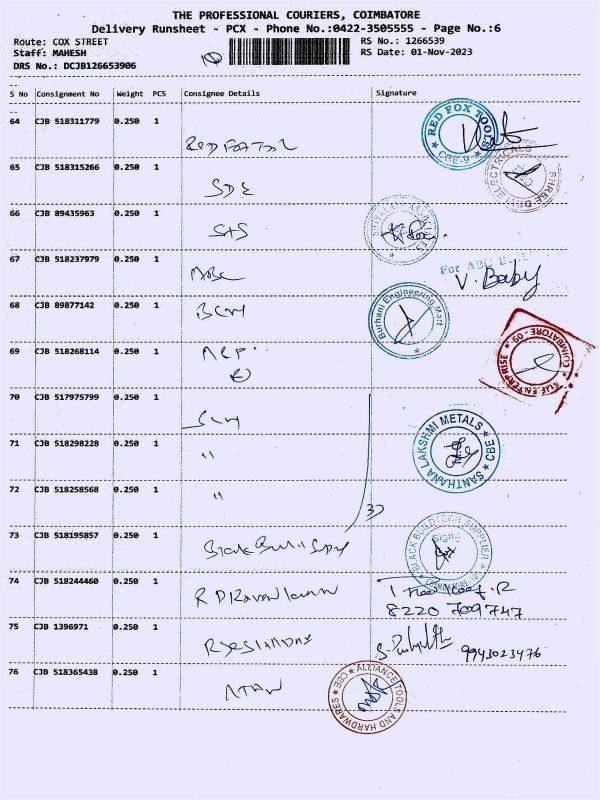 THE PROFESSIONAL COURIERS, COIMBATORE
Delivery Runsheet - PCX - Phone No.:0422-3505555 - Page No.:6
Route: COX STREET
RS No.: 1266539
Staff: MAHESH
RS Date: 01-Nov-2023
DRS No.: DCJB126653906
S No Consignment No Weight PCS Consignee Details Signature
64 CJB 518311779 0.250 1
RED FOX TOOLS
CBE-9
65 CJB 518315266 0.250 1
SDE
66 CJB 89435963 0.250 1
S+S
67 CJB 518237979 0.250 1
For ABC
V. Baby
68 CJB 89877142 0.250 1
BCM
Burhani Engineering Mart
69 CJB 518268114 0.250 1
ENTERPRISE * COIMBATORE - 09
70 CJB 517975799 0.250 1
71 CJB 518298228 0.250 1
"
SANTHANA LAKSHMI METALS * CBE *
72 CJB 518258568 0.250 1
"
73 CJB 518195857 0.250 1
BLACK BUILDTECH SUPPLIER
Sign.
COIMBATORE
74 CJB 518244460 0.250 1
8220 709747
75 CJB 1396971 0.250 1
9943023476
76 CJB 518365438 0.250 1
ALLIANCE TOOLS AND HARDWARES * CBE *